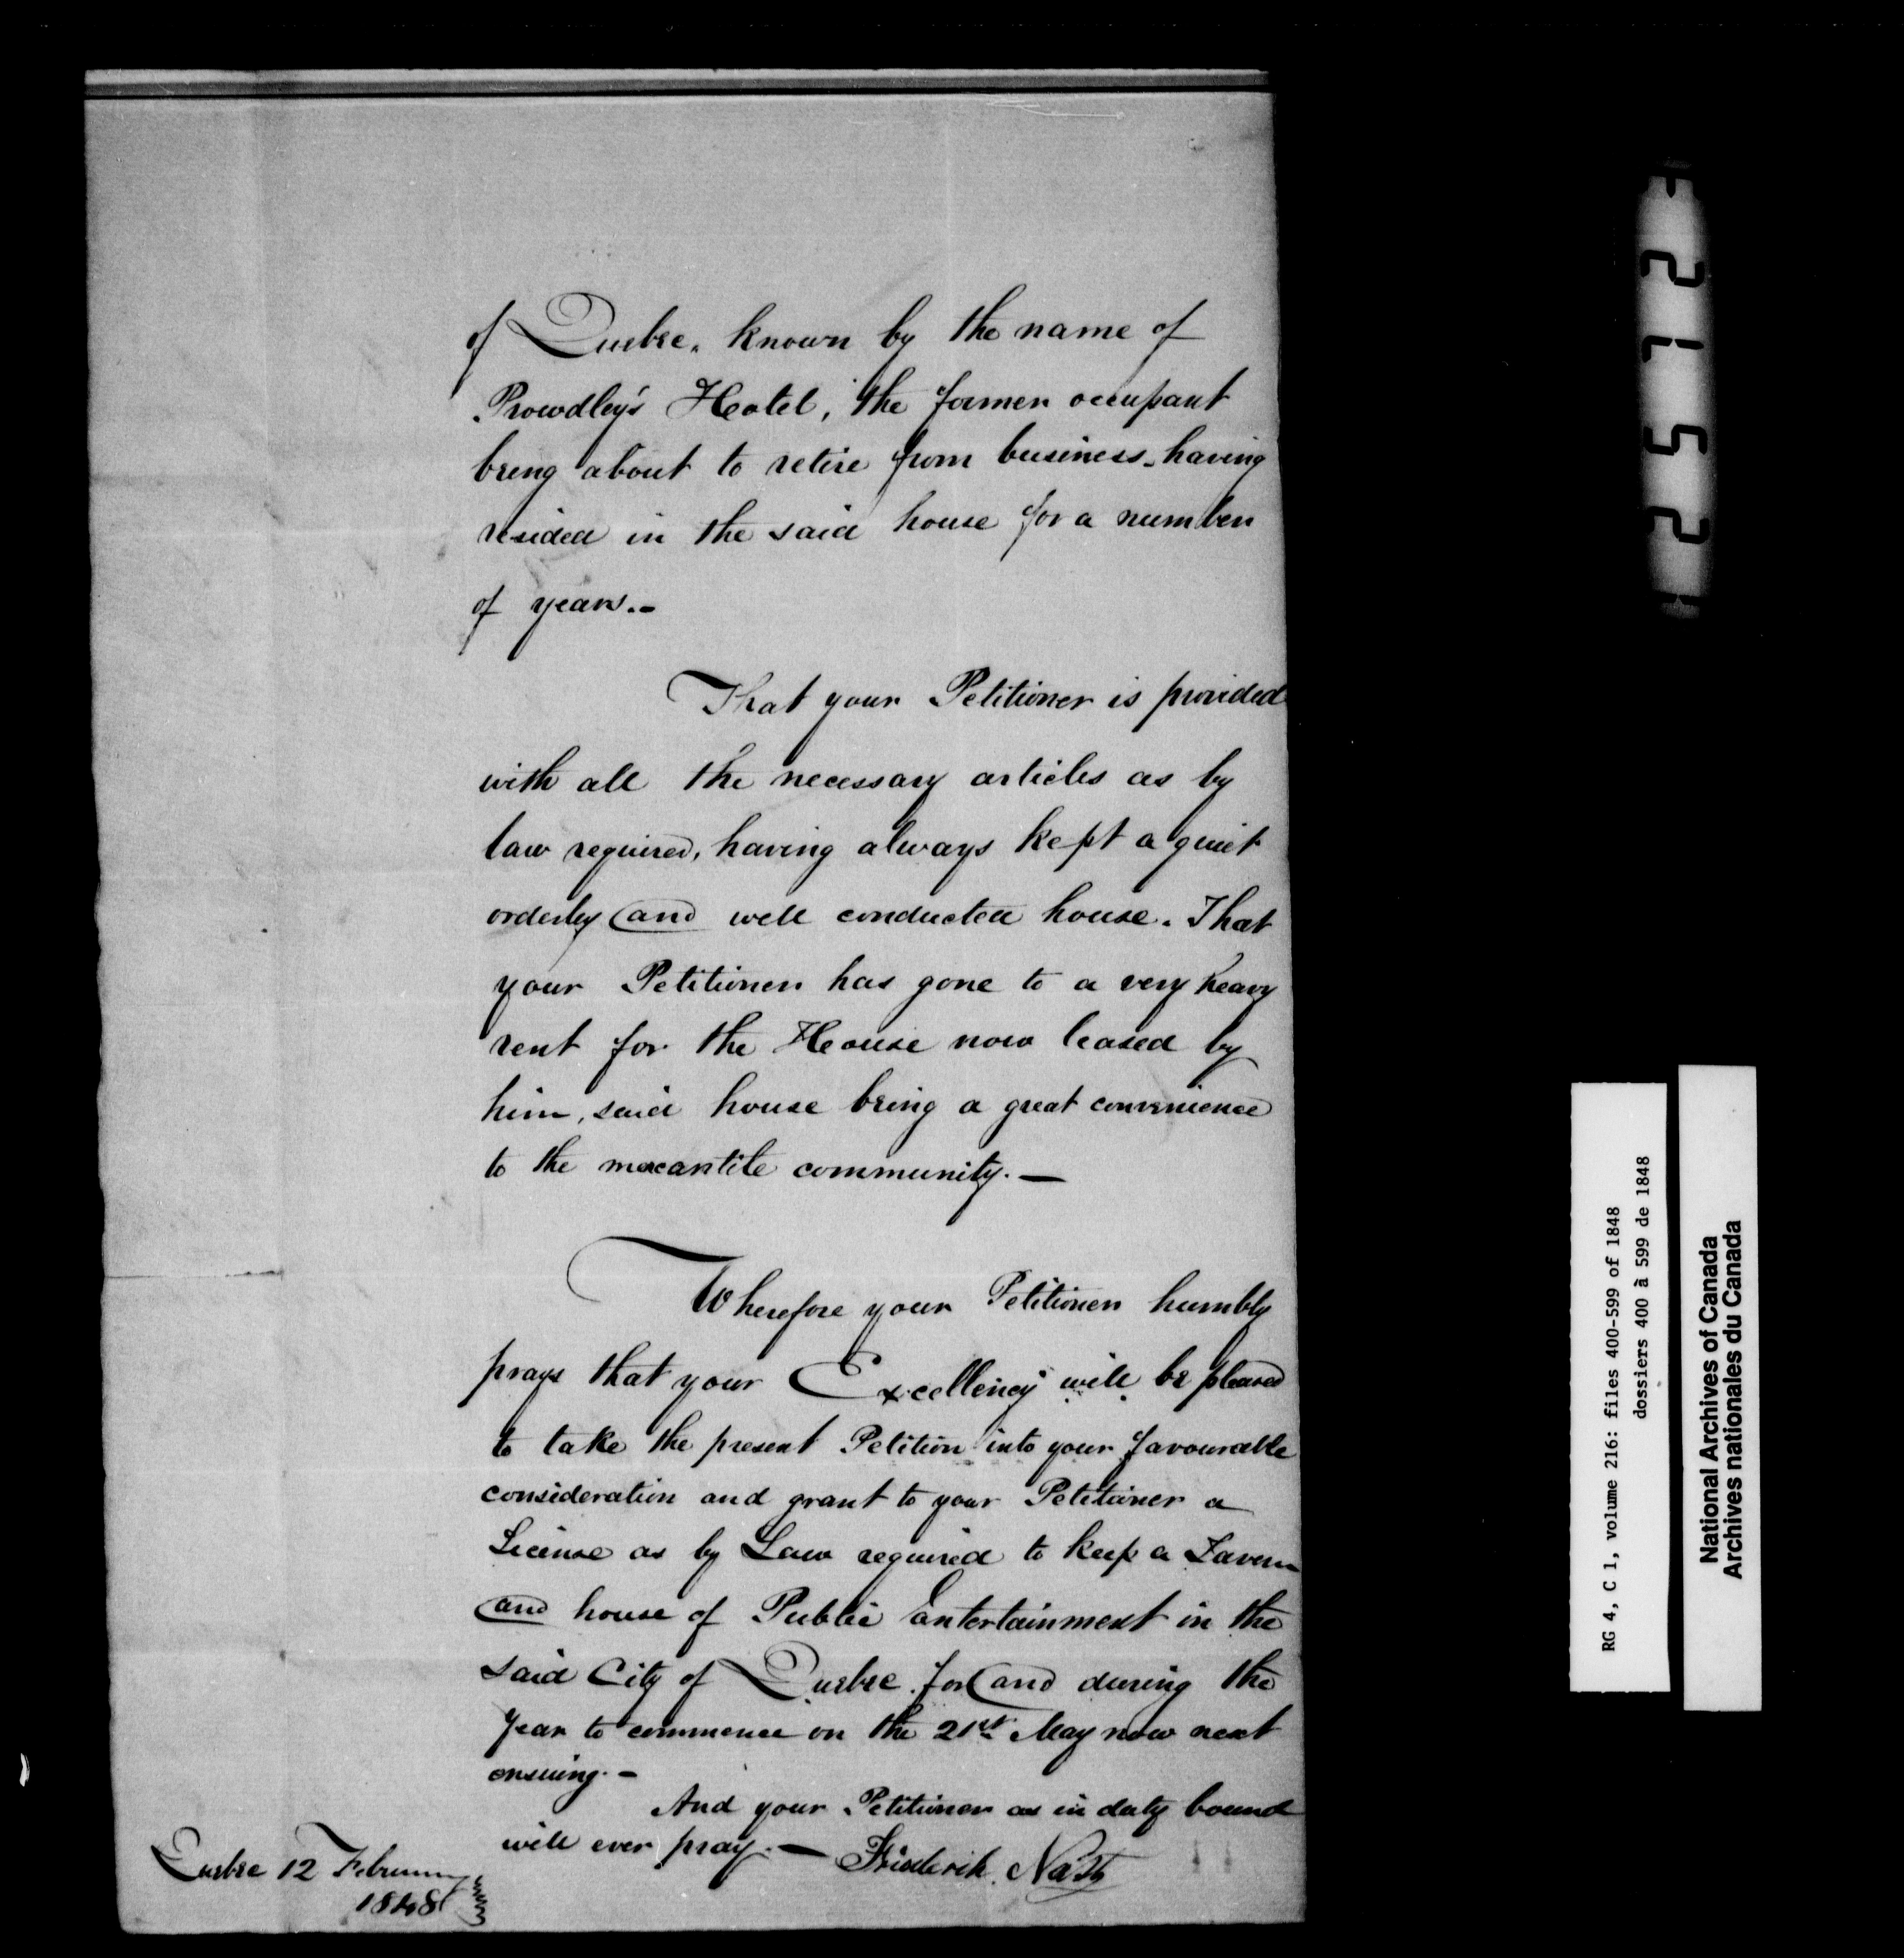 of Quebec, known by the name of
Prowdley's Hotel, the former occupant
being about to retire from business - having
resided in the said house for a number
of years.-
That your Petitioner is provided
with all the necessary articles as by
law required, having always kept a quiet
orderly and well conducted house. That
your Petitioner has gone to a very heavy
rent for the House now leased by
him, said house being a great convenience
to the mercantile community.—
Wherefore your Petitioner humbly
prays that your Excellency will be pleased
to take the present Petition into your favourable
consideration and grant to your Petitioner a
License as by Law required to keep a Tavern
and house of Public Entertainment in the
said City of Quebec for and during the
year to commence on the 21st May now next
ensuing.-
And your Petitioner as in duty bound
will ever pray.—
Frederick Nash
Quebec 12 February
1848
2 5 7 2
RG 4, C 1, volume 216: files 400-599 of 1848
dossiers 400 à 599 de 1848
National Archives of Canada
Archives nationales du Canada